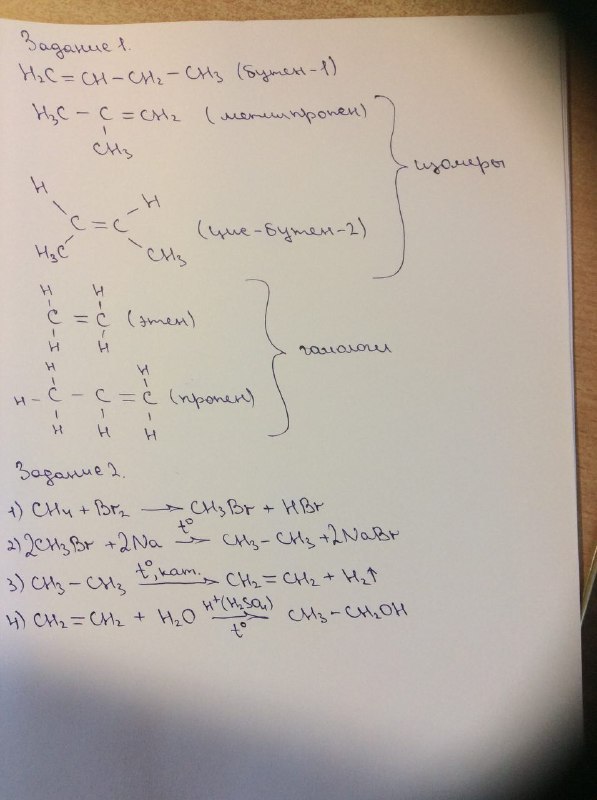 Задание 1.
H₂C=CH-CH₂-CH₃ (бутен-1)
H₃C - C = CH₂ (метилпропен)
CH₃
изомеры
H
H
C = C
(цис-бутен-2)
H₃C
CH₃
H H
C = C (этен)
H H
гомологи
H H
H - C - C = C (пропен)
H H H
Задание 2.
1) CH₄ + Br₂ → CH₃Br + HBr
2) 2CH₃Br + 2Na t° → CH₃-CH₃ + 2NaBr
3) CH₃-CH₃ t°, кат. → CH₂=CH₂ + H₂↑
4) CH₂=CH₂ + H₂O H⁺(H₂SO₄) → t° CH₃-CH₂OH